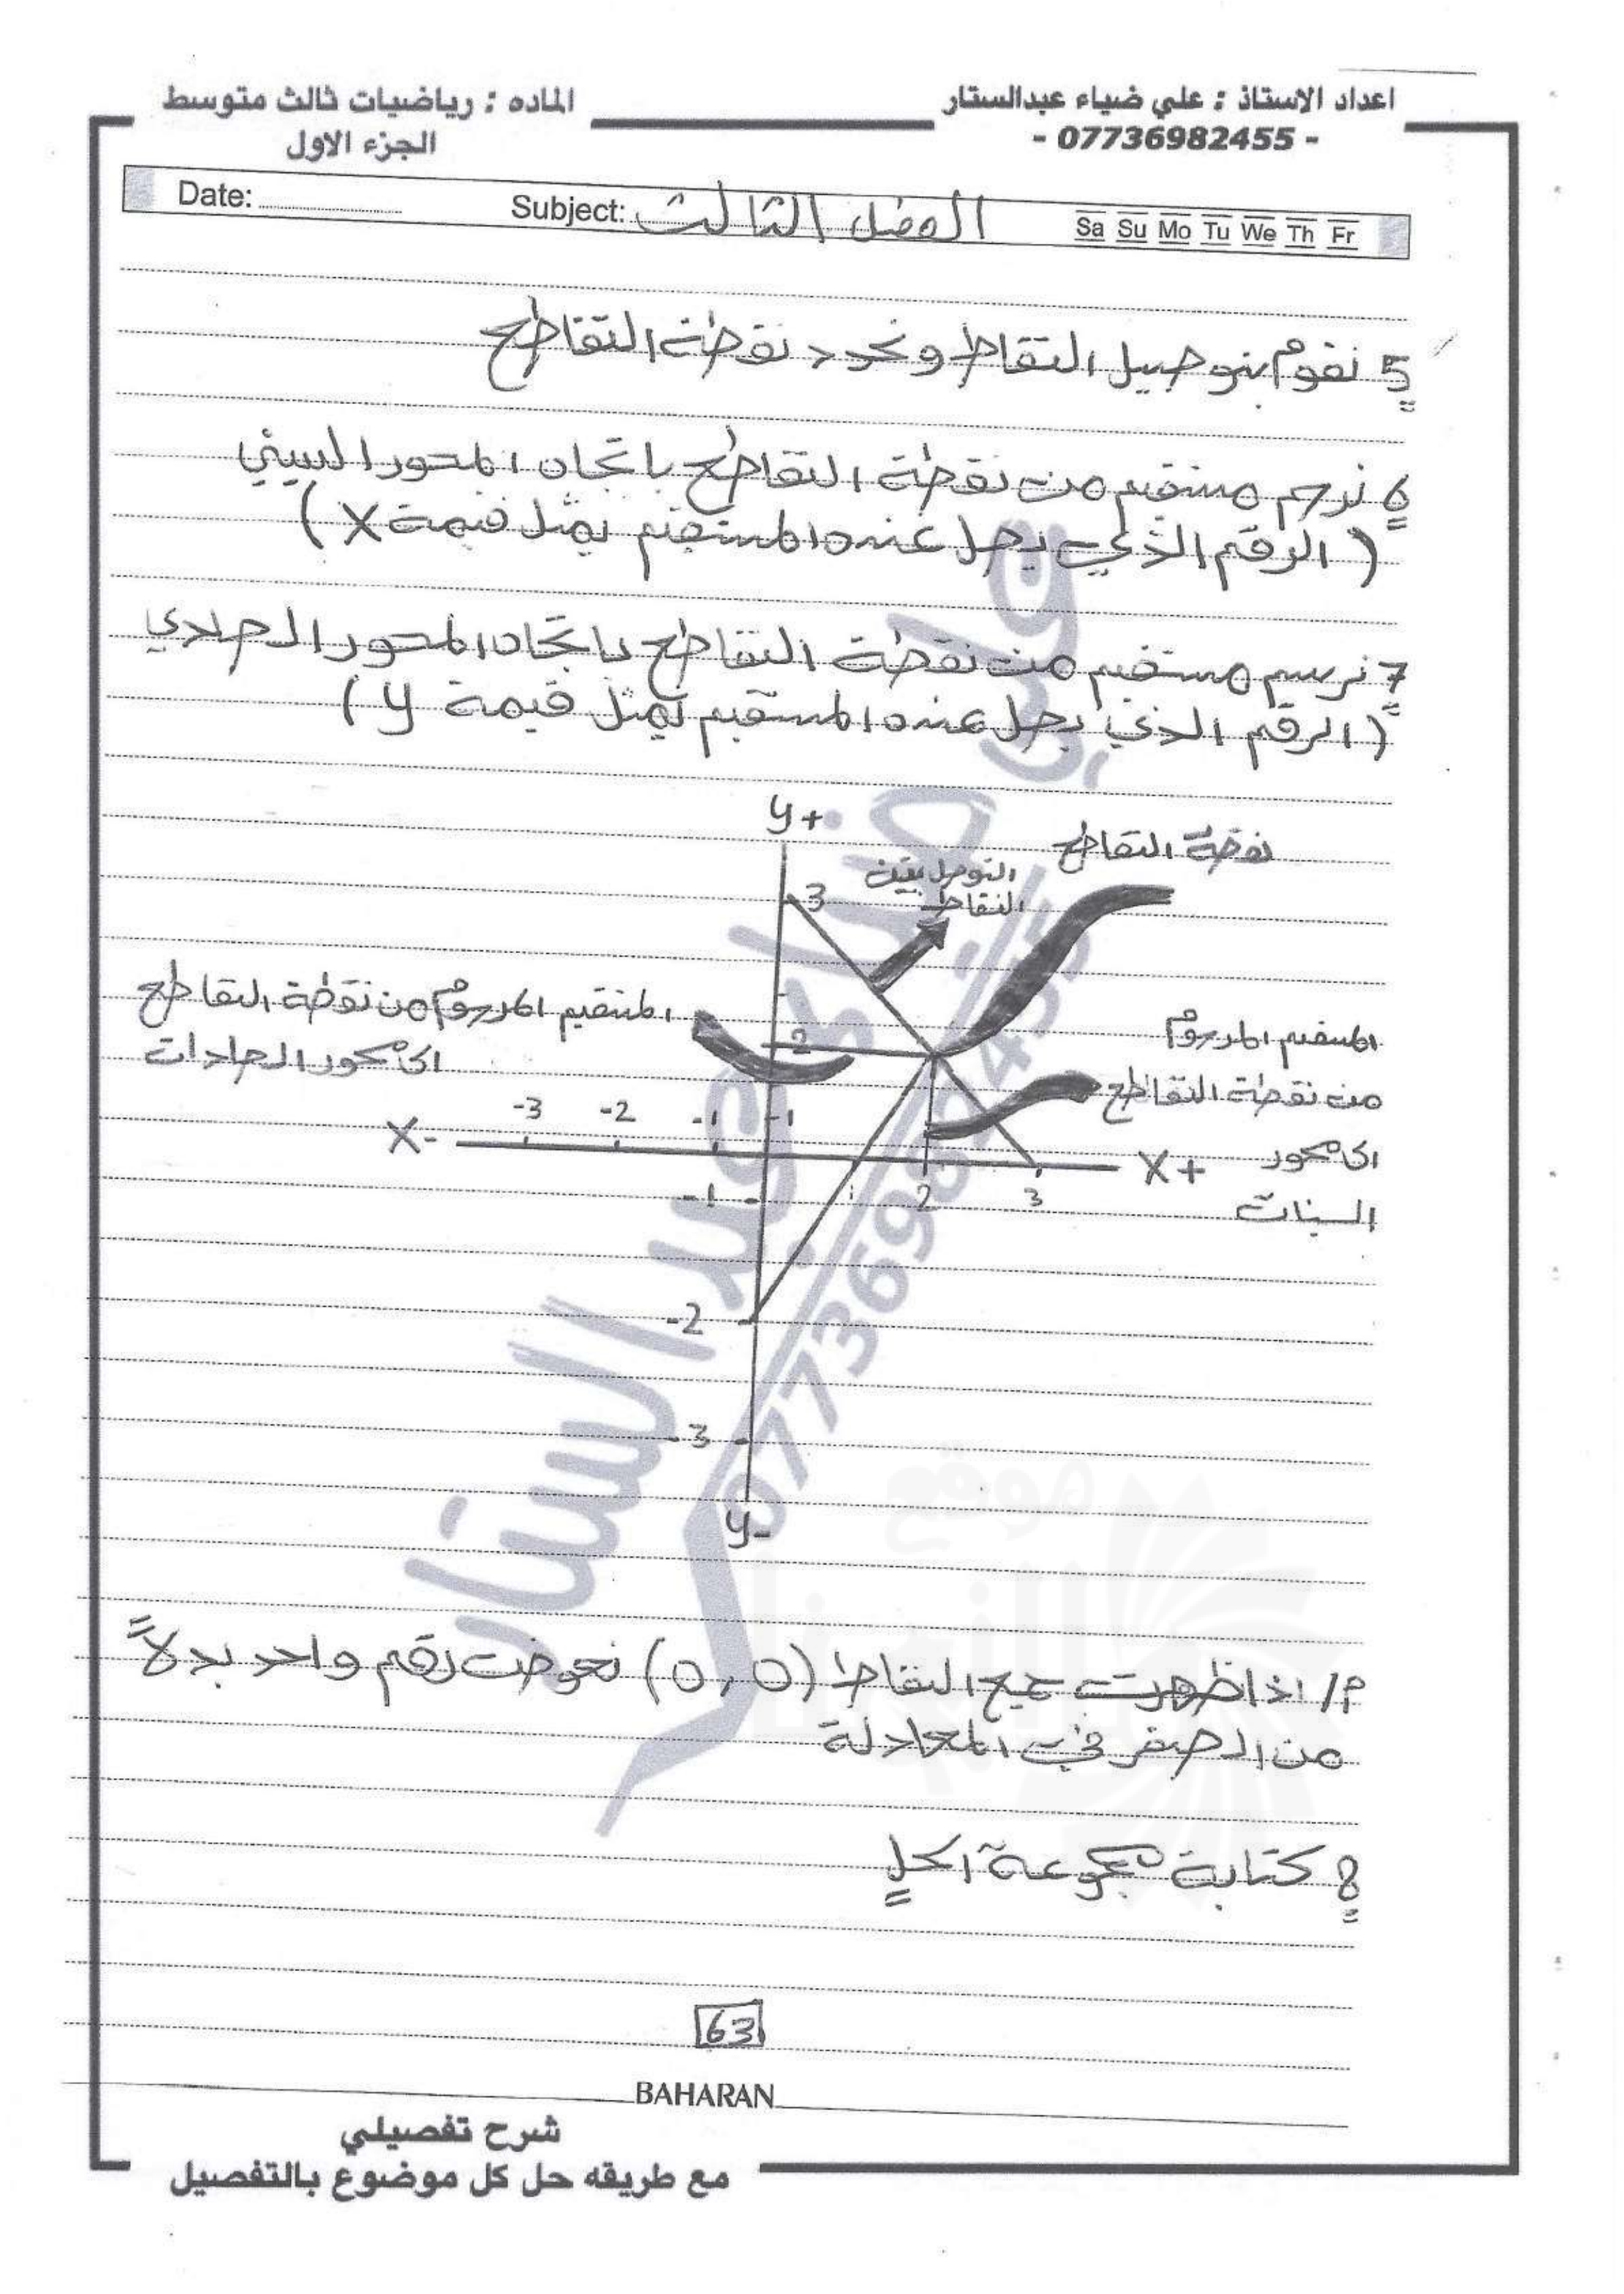 اعداد الاستاذ : علي ضياء عبدالستار
- 07736982455 -
الماده : رياضيات ثالث متوسط
الجزء الاول
Date:
Subject: الفصل الثالث
Sa Su Mo Tu We Th Fr
5 نقوم بتوصيل النقاط ونحدد نقطة التقاطع
6 نرسم مستقيم من نقطة التقاطع باتجاه المحور السيني
( الرقم الذي يصل عنده المستقيم يمثل قيمة X )
7 نرسم مستقيم من نقطة التقاطع باتجاه المحور الصادي
( الرقم الذي يصل عنده المستقيم يمثل قيمة y )
y+
نقطة التقاطع
التوصل بين
النقاط
3
المستقيم المرسوم من نقطة التقاطع
الى محور الصادات
2
المستقيم المرسوم
من نقطة التقاطع
الى محور
السينات
X- -3 -2 -1 -1
X+
-1 1 2 3
-2
-3
y-
علي ضياء عبد الستار
07736982455
م/ اذا ظهرت جميع النقاط (0,0) نعوض رقم واحد بدلاً
من الصفر في المعادلة
8 كتابة مجموعة الحل
63
BAHARAN
شرح تفصيلي
مع طريقه حل كل موضوع بالتفصيل